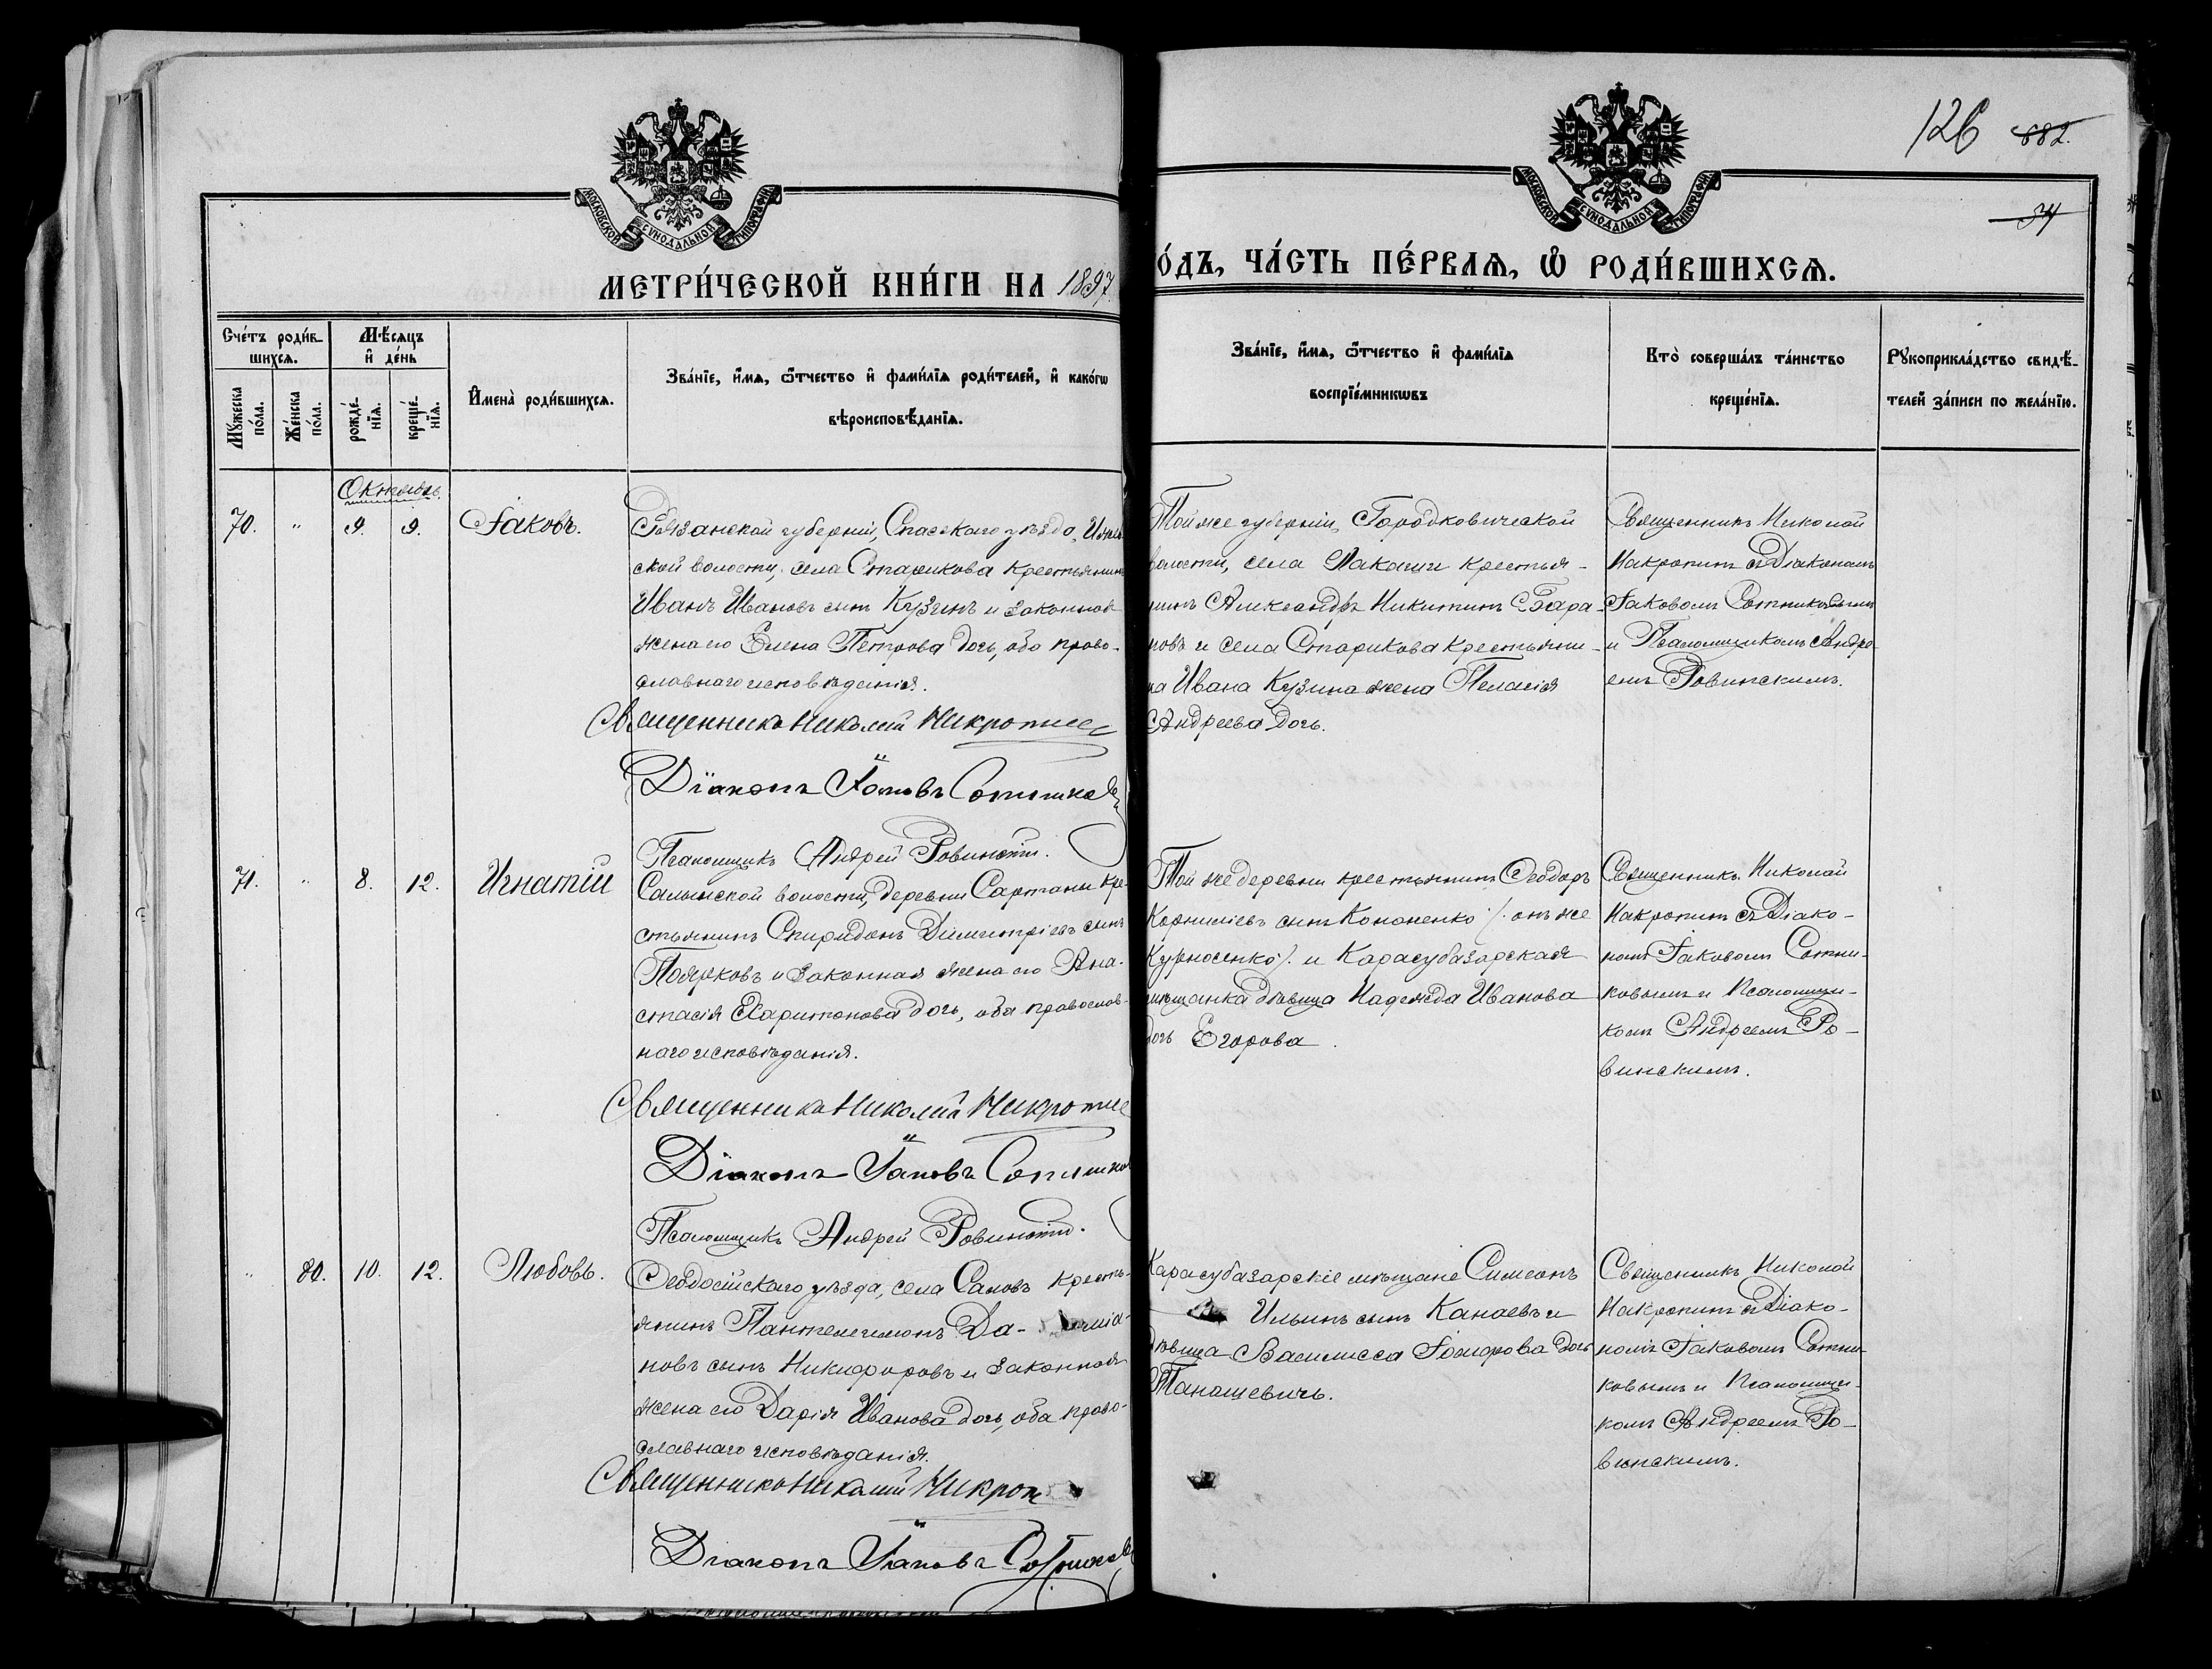 126 682.
34
МОСКОВСКОЙ СѴНОДАЛЬНОЙ ТИПОГРАФІИ
МОСКОВСКОЙ СѴНОДАЛЬНОЙ ТИПОГРАФІИ
МЕТРИ́ЧЕСКОЙ КНИ́ГИ НА 1897
О́ДЪ, ЧА́СТЬ ПЕ́РВАѦ, Ѡ РОДИ́ВШИХСѦ.
Сче́тъ роди́в-
шихсѧ.
Мꙋжеска
по́ла.
Же́нска
по́ла.
Мѣ́сѧцъ
и҆ де́нь
рожде́-
нїѧ.
креще́-
нїѧ.
И҆мена̀ роди́вшихсѧ.
Зва́нїе, и҆́мѧ, ѻ҆́тчество и҆ фами́лїѧ роди́телей, и҆ како́гѡ
вѣроисповѣ́данїѧ.
Зва́нїе, и҆́мѧ, ѻ҆́тчество и҆ фами́лїѧ
воспрїе́мникѡвъ
Кто̀ соверша́лъ та́инство
креще́нїѧ.
Рꙋкоприкла́дство свидѣ́-
телей за́писи по жела́нїю.
Октябрь.
70. " 9. 9. Іаковъ.
Рязанской губерніи, Спасскаго уѣзда,
ской волости, села Старикова крестьянинъ
Иванъ Ивановъ сынъ Кузинъ и законная
жена его Елена Петрова дочь, оба право-
славнаго исповѣданія.
Священникъ Николай
Діаконъ Іаковъ Сотников
Псаломщикъ Андрей Ровинскій.
Той же губерніи, Городковической
волости, села Лакаши крестья-
нинъ Александръ Никитинъ Бара-
новъ и села Старикова крестьяни-
на Ивана Кузина жена Пелагія
Андреева дочь.
Священникъ Николай
Накропинъ съ Діакономъ
Іаковомъ Сотниковымъ
и Псаломщикомъ Андре-
емъ Ровинскимъ.
71. " 8. 12. Игнатій
Салынской волости, деревни Сартаны кре-
стьянинъ Спиридонъ Димитріевъ сынъ
Поярковъ и законная жена его Ана-
стасія Харитонова дочь, оба православ-
наго исповѣданія.
Священникъ Николай
Діаконъ Іаковъ Сотников
Псаломщикъ Андрей Ровинскій.
Той же деревни крестьянинъ Ѳеодоръ
Корниліевъ сынъ Кононенко /. онъ же
Курносенко ./ и Карасубазарская
мѣщанка дѣвица Надежда Иванова
дочь Егорова.
Священникъ Николай
Накропинъ съ Діако-
номъ Іаковомъ Сотни-
ковымъ и Псаломщи-
комъ Андреемъ Ро-
винскимъ.
" 80. 10. 12. Любовь.
Ѳеодосійскаго уѣзда, села Саловъ кресть-
янинъ Пантелеимонъ Да-
новъ сынъ Никифоровъ и законная
жена его Дарія Иванова дочь, оба право-
славнаго исповѣданія.
Священникъ Николай
Діаконъ Іаковъ Сотников
Карасубазарскіе мѣщане Симеонъ
Ильинъ сынъ Канаевъ и
дѣвица Василисса дочь
Танашевичъ.
Священникъ Николай
Накропинъ съ Діако-
номъ Іаковомъ Сотни-
ковымъ и Псаломщи-
комъ Андреемъ Ро-
винскимъ.